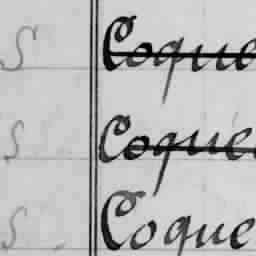 S Coque
S Coqué
S Coque